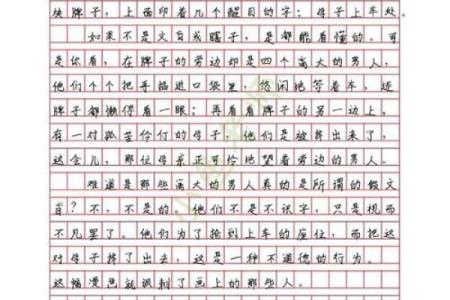 块牌子，上面印着几个醒目的字：母子上车处。
如果不是文盲或瞎子，是都能看懂的。可
是你看，在牌子的旁边却是四个高大的男人，
他们个个把手插进口袋里，悠闲地等着车，连
牌子都懒得看一眼；再看看牌子的另一边上，
有一对孤苦伶仃的母子，他们是被挤出来了，
这会儿，那位母亲正可怜地望着旁边的男人。
难道是那些高大的男人真的是所谓的假文
盲？不，不是的，他们不是不识字，只是视而
不见罢了。他们为了抢到上车的座位，而把这
对母子挤了出去，这是一种不道德的行为。
这幅漫画就讽刺了画上的那些人。